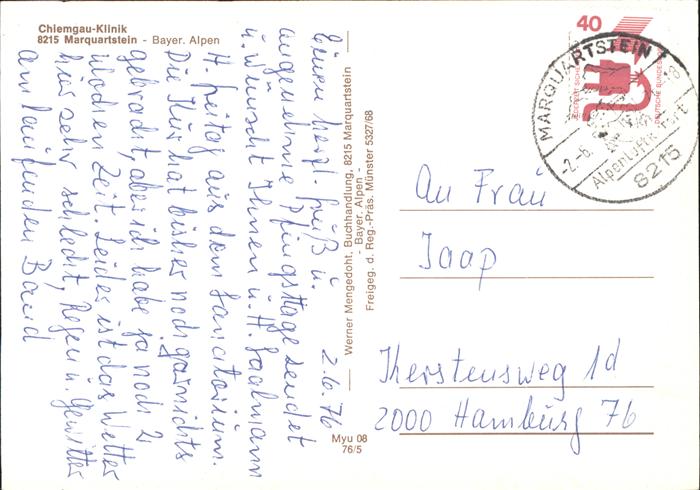 Chiemgau-Klinik
8215 Marquartstein - Bayer. Alpen
2.6.76
Einen herzl. Gruß u.
angenehme Pfingsttage sendet
u. wünscht Ihnen u. H.
H. Freitag aus dem Sanatorium.
Die Kur hat bisher noch garnichts
gebracht, aber ich habe ja noch 2
Wochen Zeit. Leider ist das Wetter
hier sehr schlecht, Regen u. Gewitter
am laufenden Band
Werner Mengedoht, Buchhandlung, 8215 Marquartstein
- Bayer. Alpen -
Freigeg. d. Reg.-Präs. Münster 5327/68
Myu 08
76/5
40
DEUTSCHE BUNDESPOST
MARQUARTSTEIN
-2.-6.
Alpenluftkurort
8215
An Frau
Jaap
Kherstensweg 1d
2000 Hamburg 76